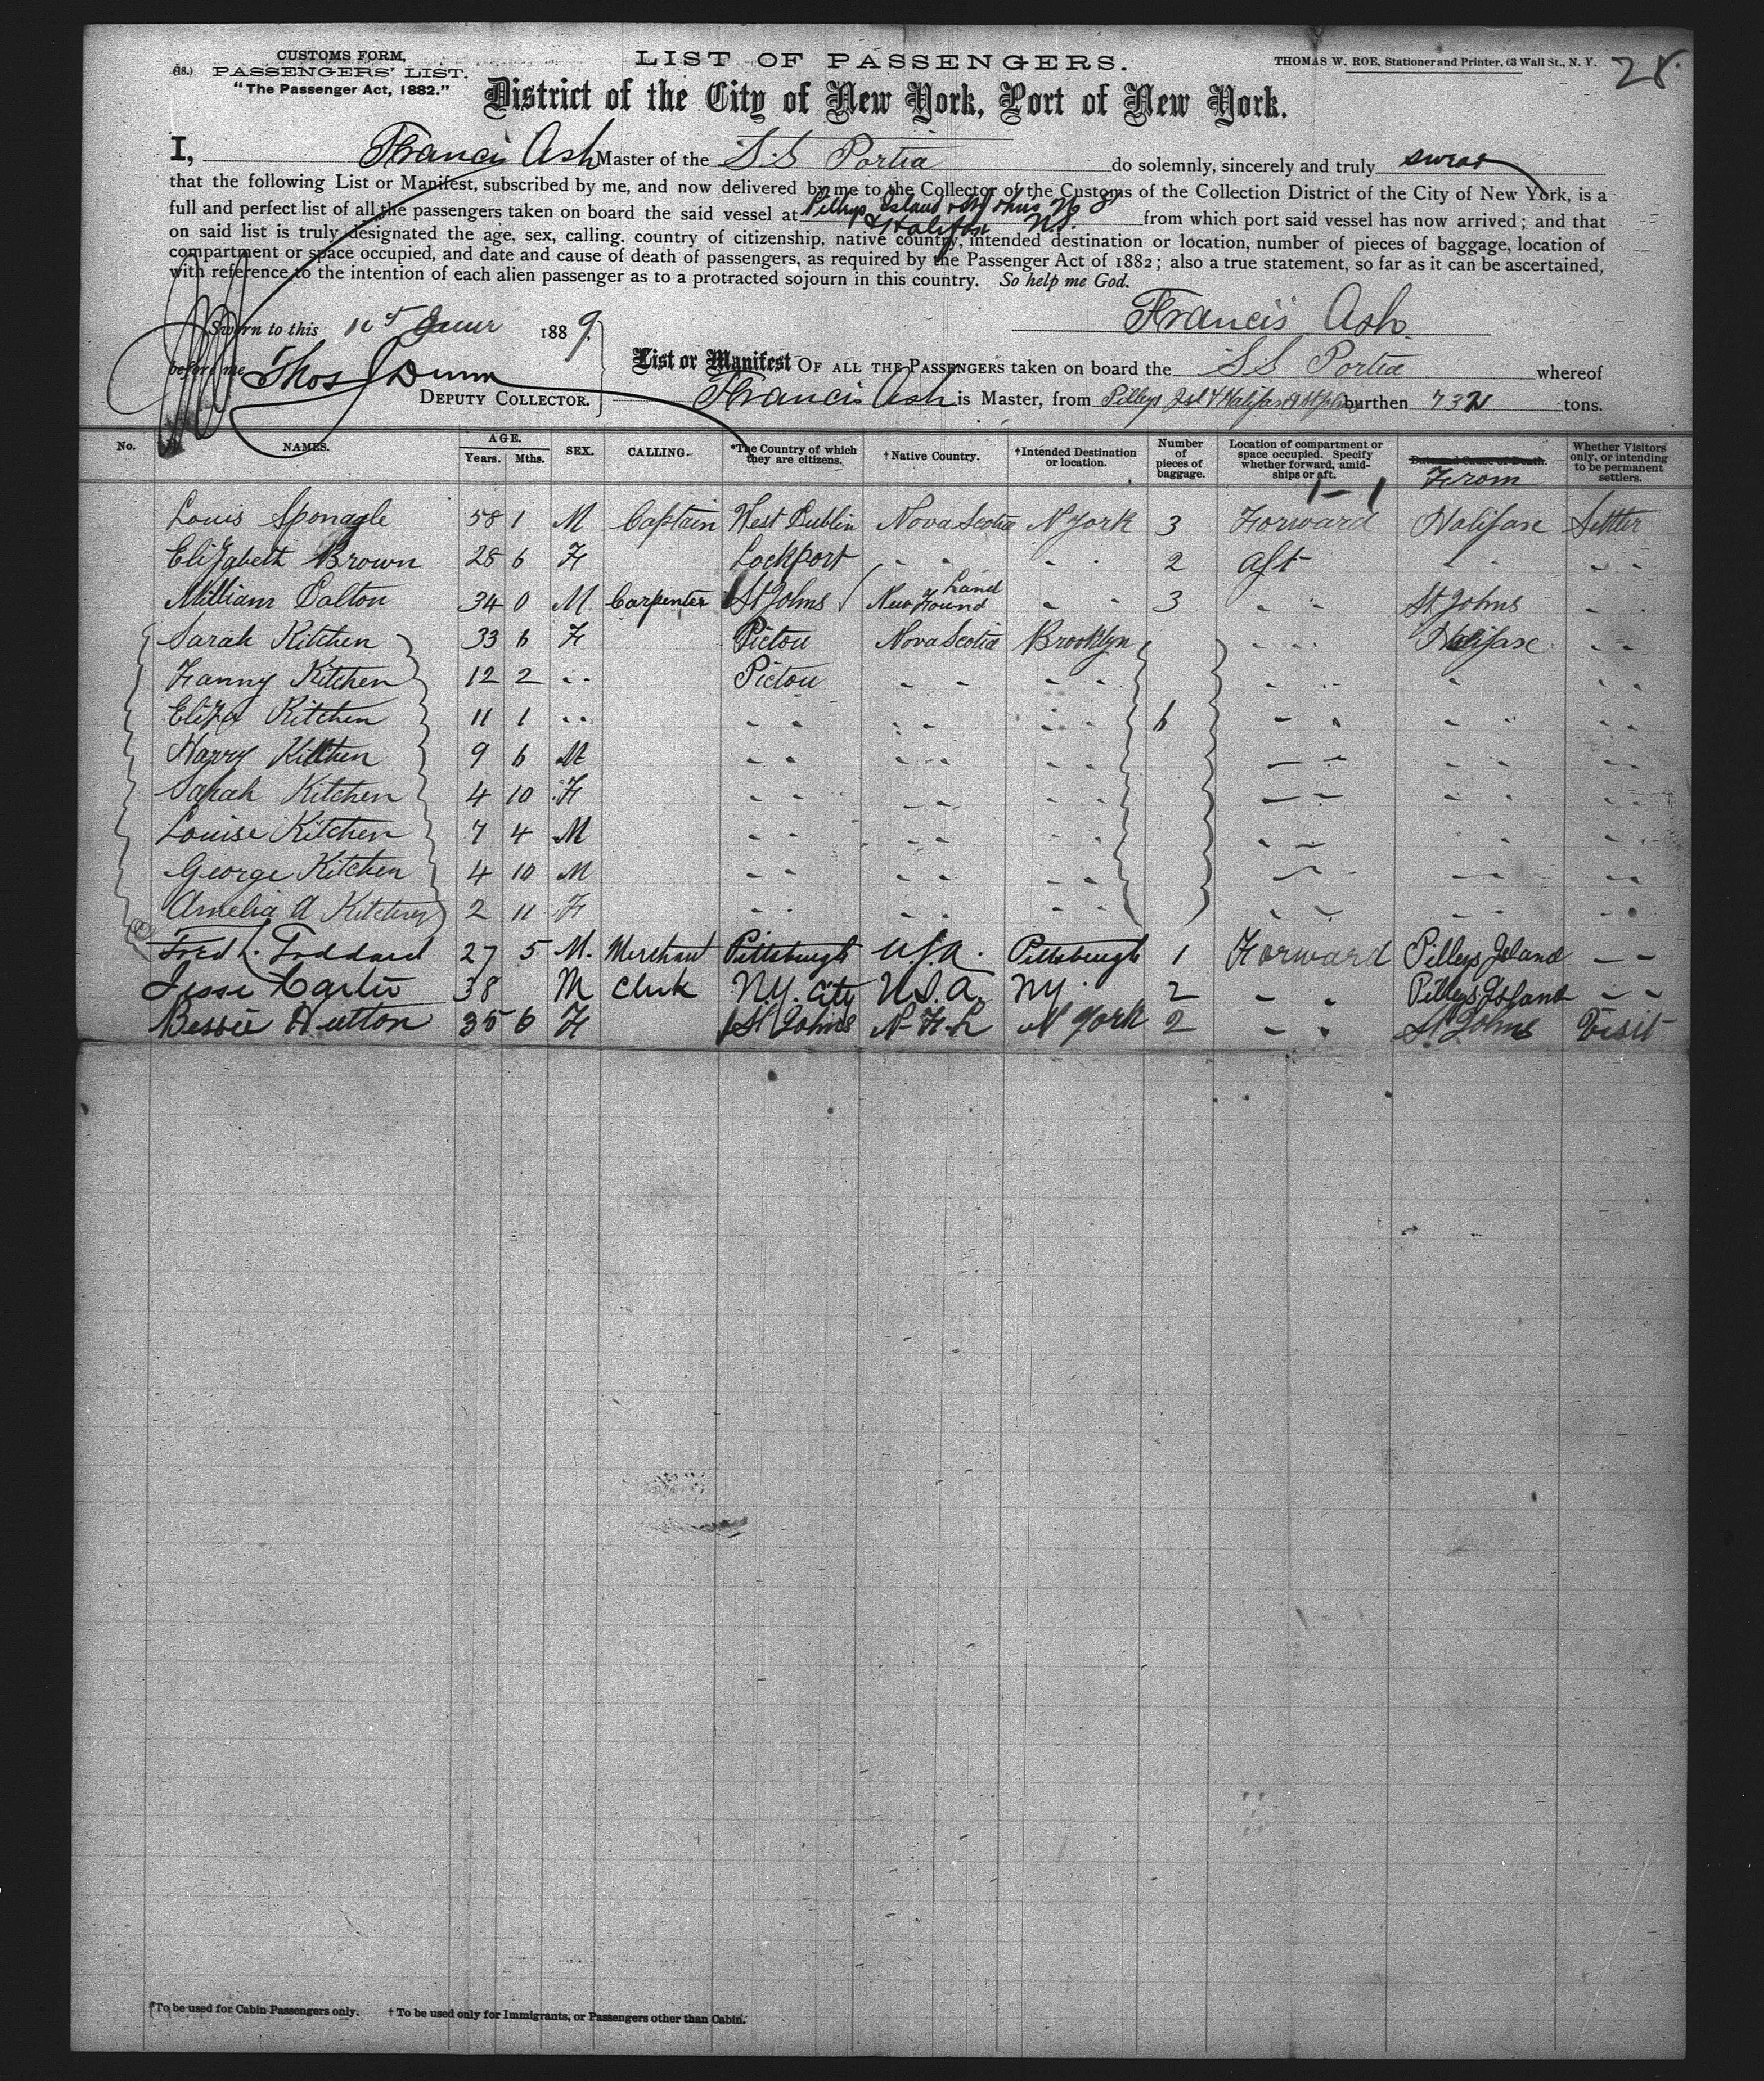 CUSTOMS FORM,
(18.) PASSENGERS' LIST.
"The Passenger Act, 1882."
LIST OF PASSENGERS.
THOMAS W. ROE, Stationer and Printer, 63 Wall St., N. Y.
28
District of the City of New York, Port of New York.
I, Francis Ash Master of the S.S Portia do solemnly, sincerely and truly swear
that the following List or Manifest, subscribed by me, and now delivered by me to the Collector of the Customs of the Collection District of the City of New York, is a
full and perfect list of all the passengers taken on board the said vessel at Pilleys Island & St Johns N F & Halifax N.S. from which port said vessel has now arrived; and that
on said list is truly designated the age, sex, calling. country of citizenship, native country, intended destination or location, number of pieces of baggage, location of
compartment or space occupied, and date and cause of death of passengers, as required by the Passenger Act of 1882; also a true statement, so far as it can be ascertained,
with reference to the intention of each alien passenger as to a protracted sojourn in this country. So help me God.
Francis Ash
Sworn to this 1889
before me Thos J Dunn
DEPUTY COLLECTOR.
List or Manifest OF ALL THE PASSENGERS taken on board the S S Portia whereof
Francis Ash is Master, from Pilleys Isl & Halifax & St Johns burthen 732 tons.
No. NAMES. AGE. Years. Mths. SEX. CALLING. *The Country of which they are citizens. †Native Country. †Intended Destination or location. Number of pieces of baggage. Location of compartment or space occupied. Specify whether forward, amidships or aft. Date and Cause of Death. From Whether Visitors only, or intending to be permanent settlers.
1 - 1
Louis Sponagle 58 1 M Captain West Dublin Nova Scotia N York 3 Forward Halifax Settler
Elizabeth Brown 28 6 F Lockport " " " " 2 Aft " " " "
William Dalton 34 0 M Carpenter St Johns New Found Land " " 3 " " St Johns " "
Sarah Kitchen 33 6 F Pictou Nova Scotia Brooklyn " " Halifax " "
Fanny Kitchen 12 2 " " Pictou " " " " " " " " " "
Eliza Kitchen 11 1 " " " " " " " " 6 " " " " " "
Harry Kitchen 9 6 M " " " " " " " " " " " "
Sarah Kitchen 4 10 F " " " " " " " " " " " "
Louise Kitchen 7 4 M " " " " " " " " " " " "
George Kitchen 4 10 M " " " " " " " " " " " "
Amelia A Kitchen 2 11 F " " " " " " " " " " " "
Fred L. Goddard 27 5 M. Merchant Pittsburgh U.S.A. Pittsburgh 1 Forward Pilleys Island " "
Jesse Carter 38 M Clerk N.Y. City U.S.A. NY. 2 " " Pilleys Island " "
Bessie Hutton 35 6 F St Johns N.F.L N York 2 " " St Johns Visit
*To be used for Cabin Passengers only. †To be used only for Immigrants, or Passengers other than Cabin.